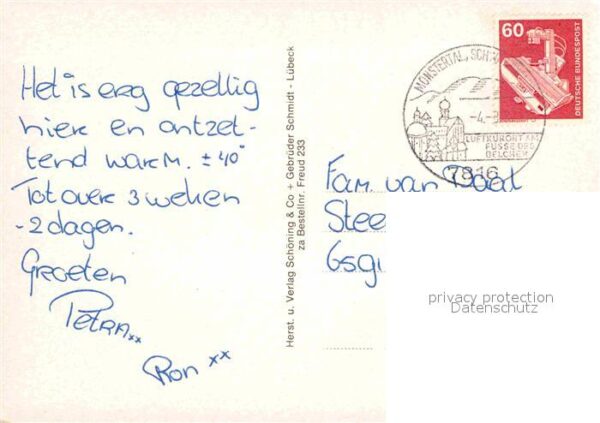 Het is erg gezellig
hier en ontzet-
tend warm. ± 40°
Tot over 3 weken
- 2 dagen.
Groeten
Petra xx
Ron xx
Herst. u. Verlag Schöning & Co + Gebrüder Schmidt - Lübeck
za Bestellnr. Freud 233
60
DEUTSCHE BUNDESPOST
MÜNSTERTAL, SCH
-4.-8
LUFTKURORT AM
FUSSE DES
BELCHEN
7816
Fam. van
Stee
privacy protection
Datenschutz